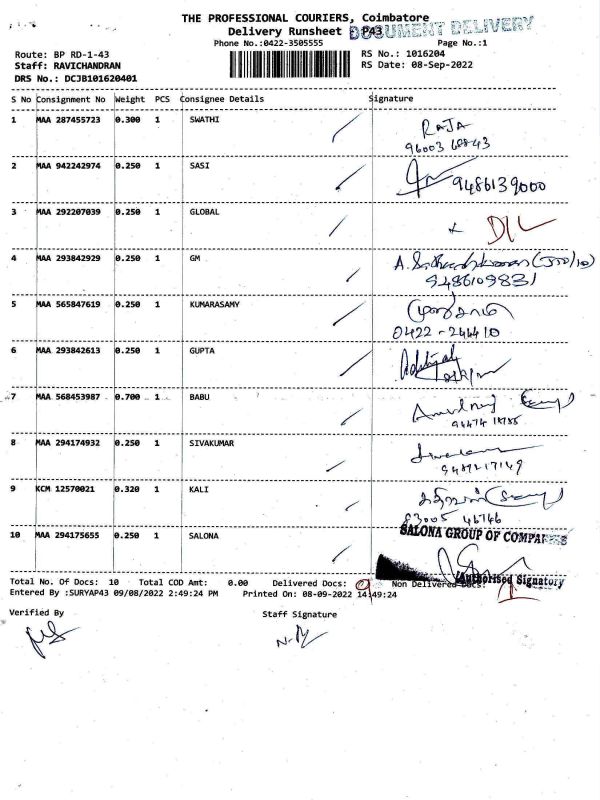 THE PROFESSIONAL COURIERS, Coimbatore
Delivery Runsheet P43 DOCUMENT DELIVERY
Phone No.:0422-3505555 Page No.:1
Route: BP RD-1-43 RS No.: 1016204
Staff: RAVICHANDRAN RS Date: 08-Sep-2022
DRS No.: DCJB101620401
S No Consignment No Weight PCS Consignee Details Signature
1 MAA 287455723 0.300 1 SWATHI RAJA
2 MAA 942242974 0.250 1 SASI 9486139000
3 MAA 292207039 0.250 1 GLOBAL D/L
4 MAA 293842929 0.250 1 GM
9486109831
5 MAA 565847619 0.250 1 KUMARASAMY
6 MAA 293842613 0.250 1 GUPTA
7 MAA 568453987 0.700 1 BABU
8 MAA 294174932 0.250 1 SIVAKUMAR
9487217149
9 KCM 12570021 0.320 1 KALI
83005 46746
10 MAA 294175655 0.250 1 SALONA SALONA GROUP OF COMPANIES
Authorised Signatory
Total No. Of Docs: 10 Total COD Amt: 0.00 Delivered Docs: 9 Non Delivered Docs: 1
Entered By :SURYAP43 09/08/2022 2:49:24 PM Printed On: 08-09-2022 14:49:24
Verified By Staff Signature